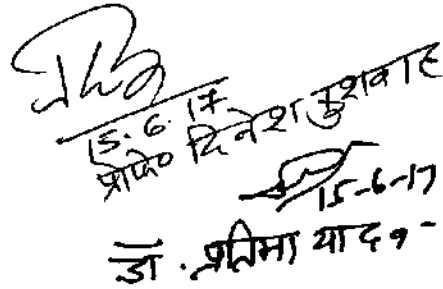 15.6.17
प्रोफे० दिनेश कुशवाह
15-6-17
डॉ. प्रतिमा यादव